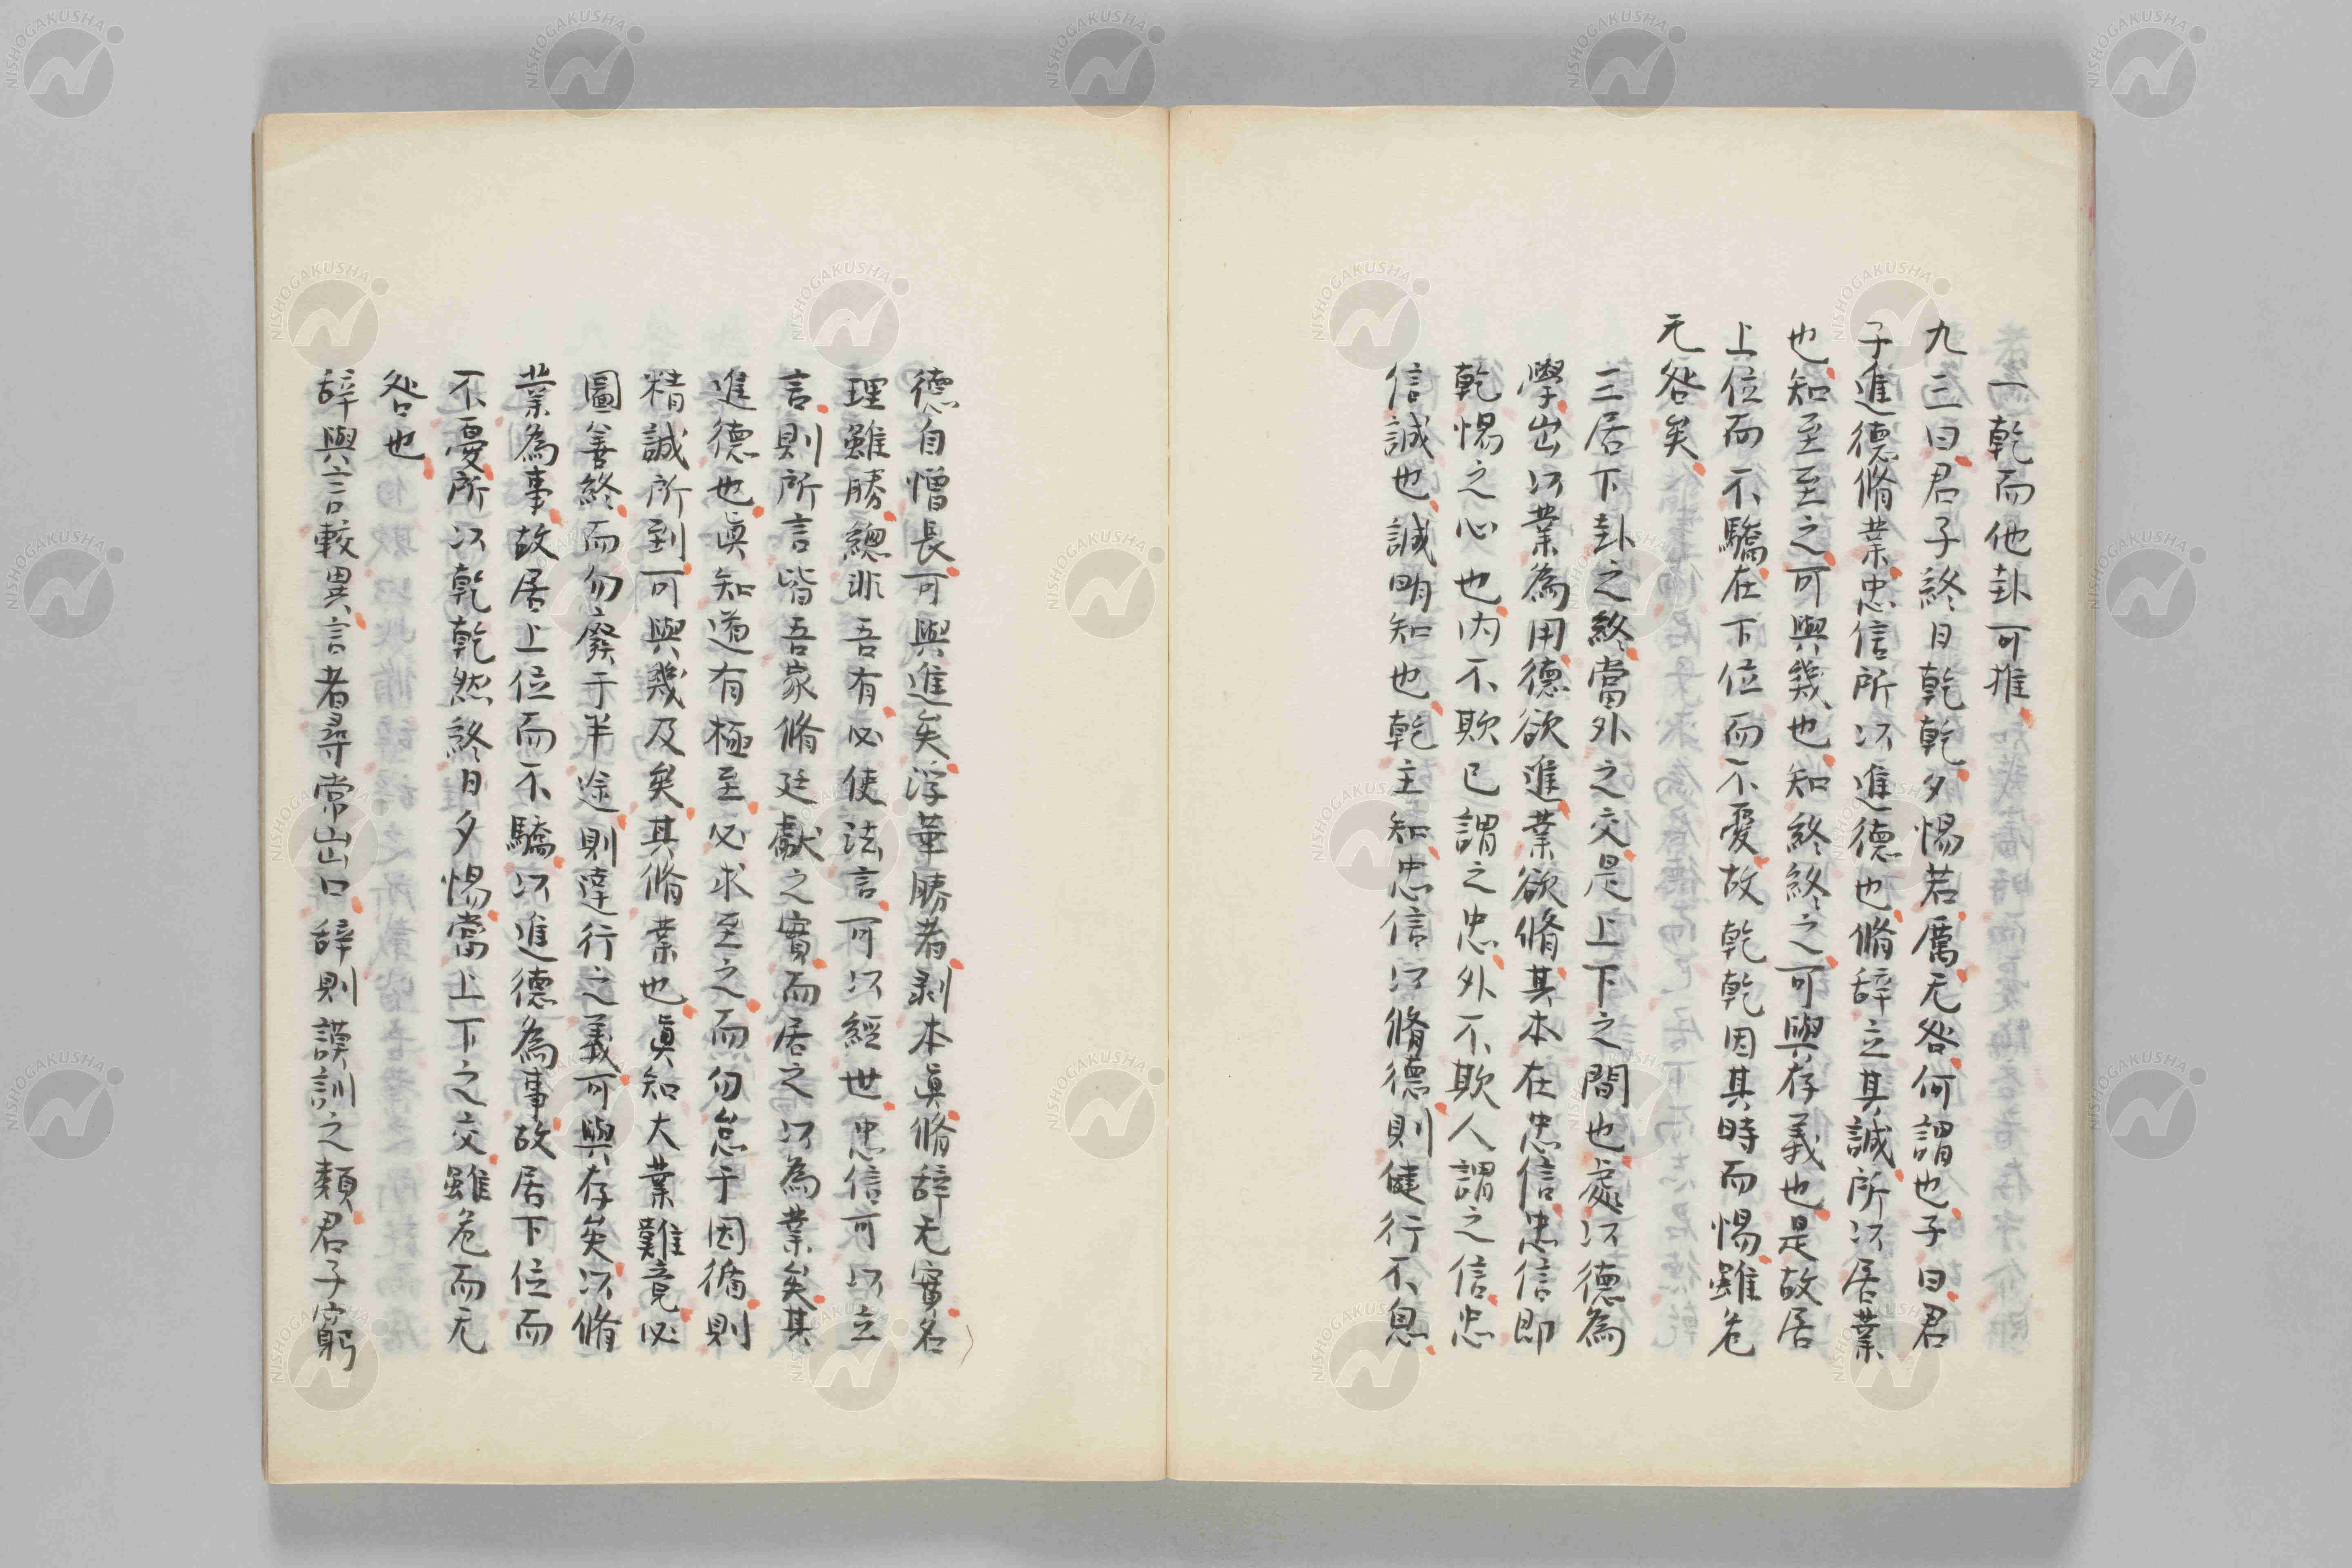 一乾而他卦可推
九三曰君子終日乾乾夕惕若厲无咎何謂也子曰君
子進德脩業忠信所以進德也脩辞立其誠所以居業
也知至至之可與幾也知終終之可與存義也是故居
上位而不驕在下位而不憂故乾乾因其時而惕雖危
无咎矣
三居下卦之終當外之交是上下之間也處以德為
學出以業為用德欲進業欲脩其本在忠信忠信即
乾惕之心也内不欺已謂之忠外不欺人謂之信忠
信誠也誠明知也乾主知忠信以脩德則健行不息
德自憎長可與進矣浮華勝者剥本眞脩辞无實名
理雖勝總非吾有必使法言可以經世忠信可以立
言則所言皆吾家脩廷獻之實而居之以為業矣其
進德也眞知道有極至必求至之而勿怠于因循則
精誠所到可與幾及矣其脩業也眞知大業難竟必
圖善終而勿廢于半途則達行之義可與存矣以脩
業為事故居上位而不驕以進德為事故居下位而
不憂所以乾乾然終日夕惕當上下之交雖危而无
咎也
辞與言較異言者尋常出口辞則謨訓之類君子窮
NISHOGAKUSHA